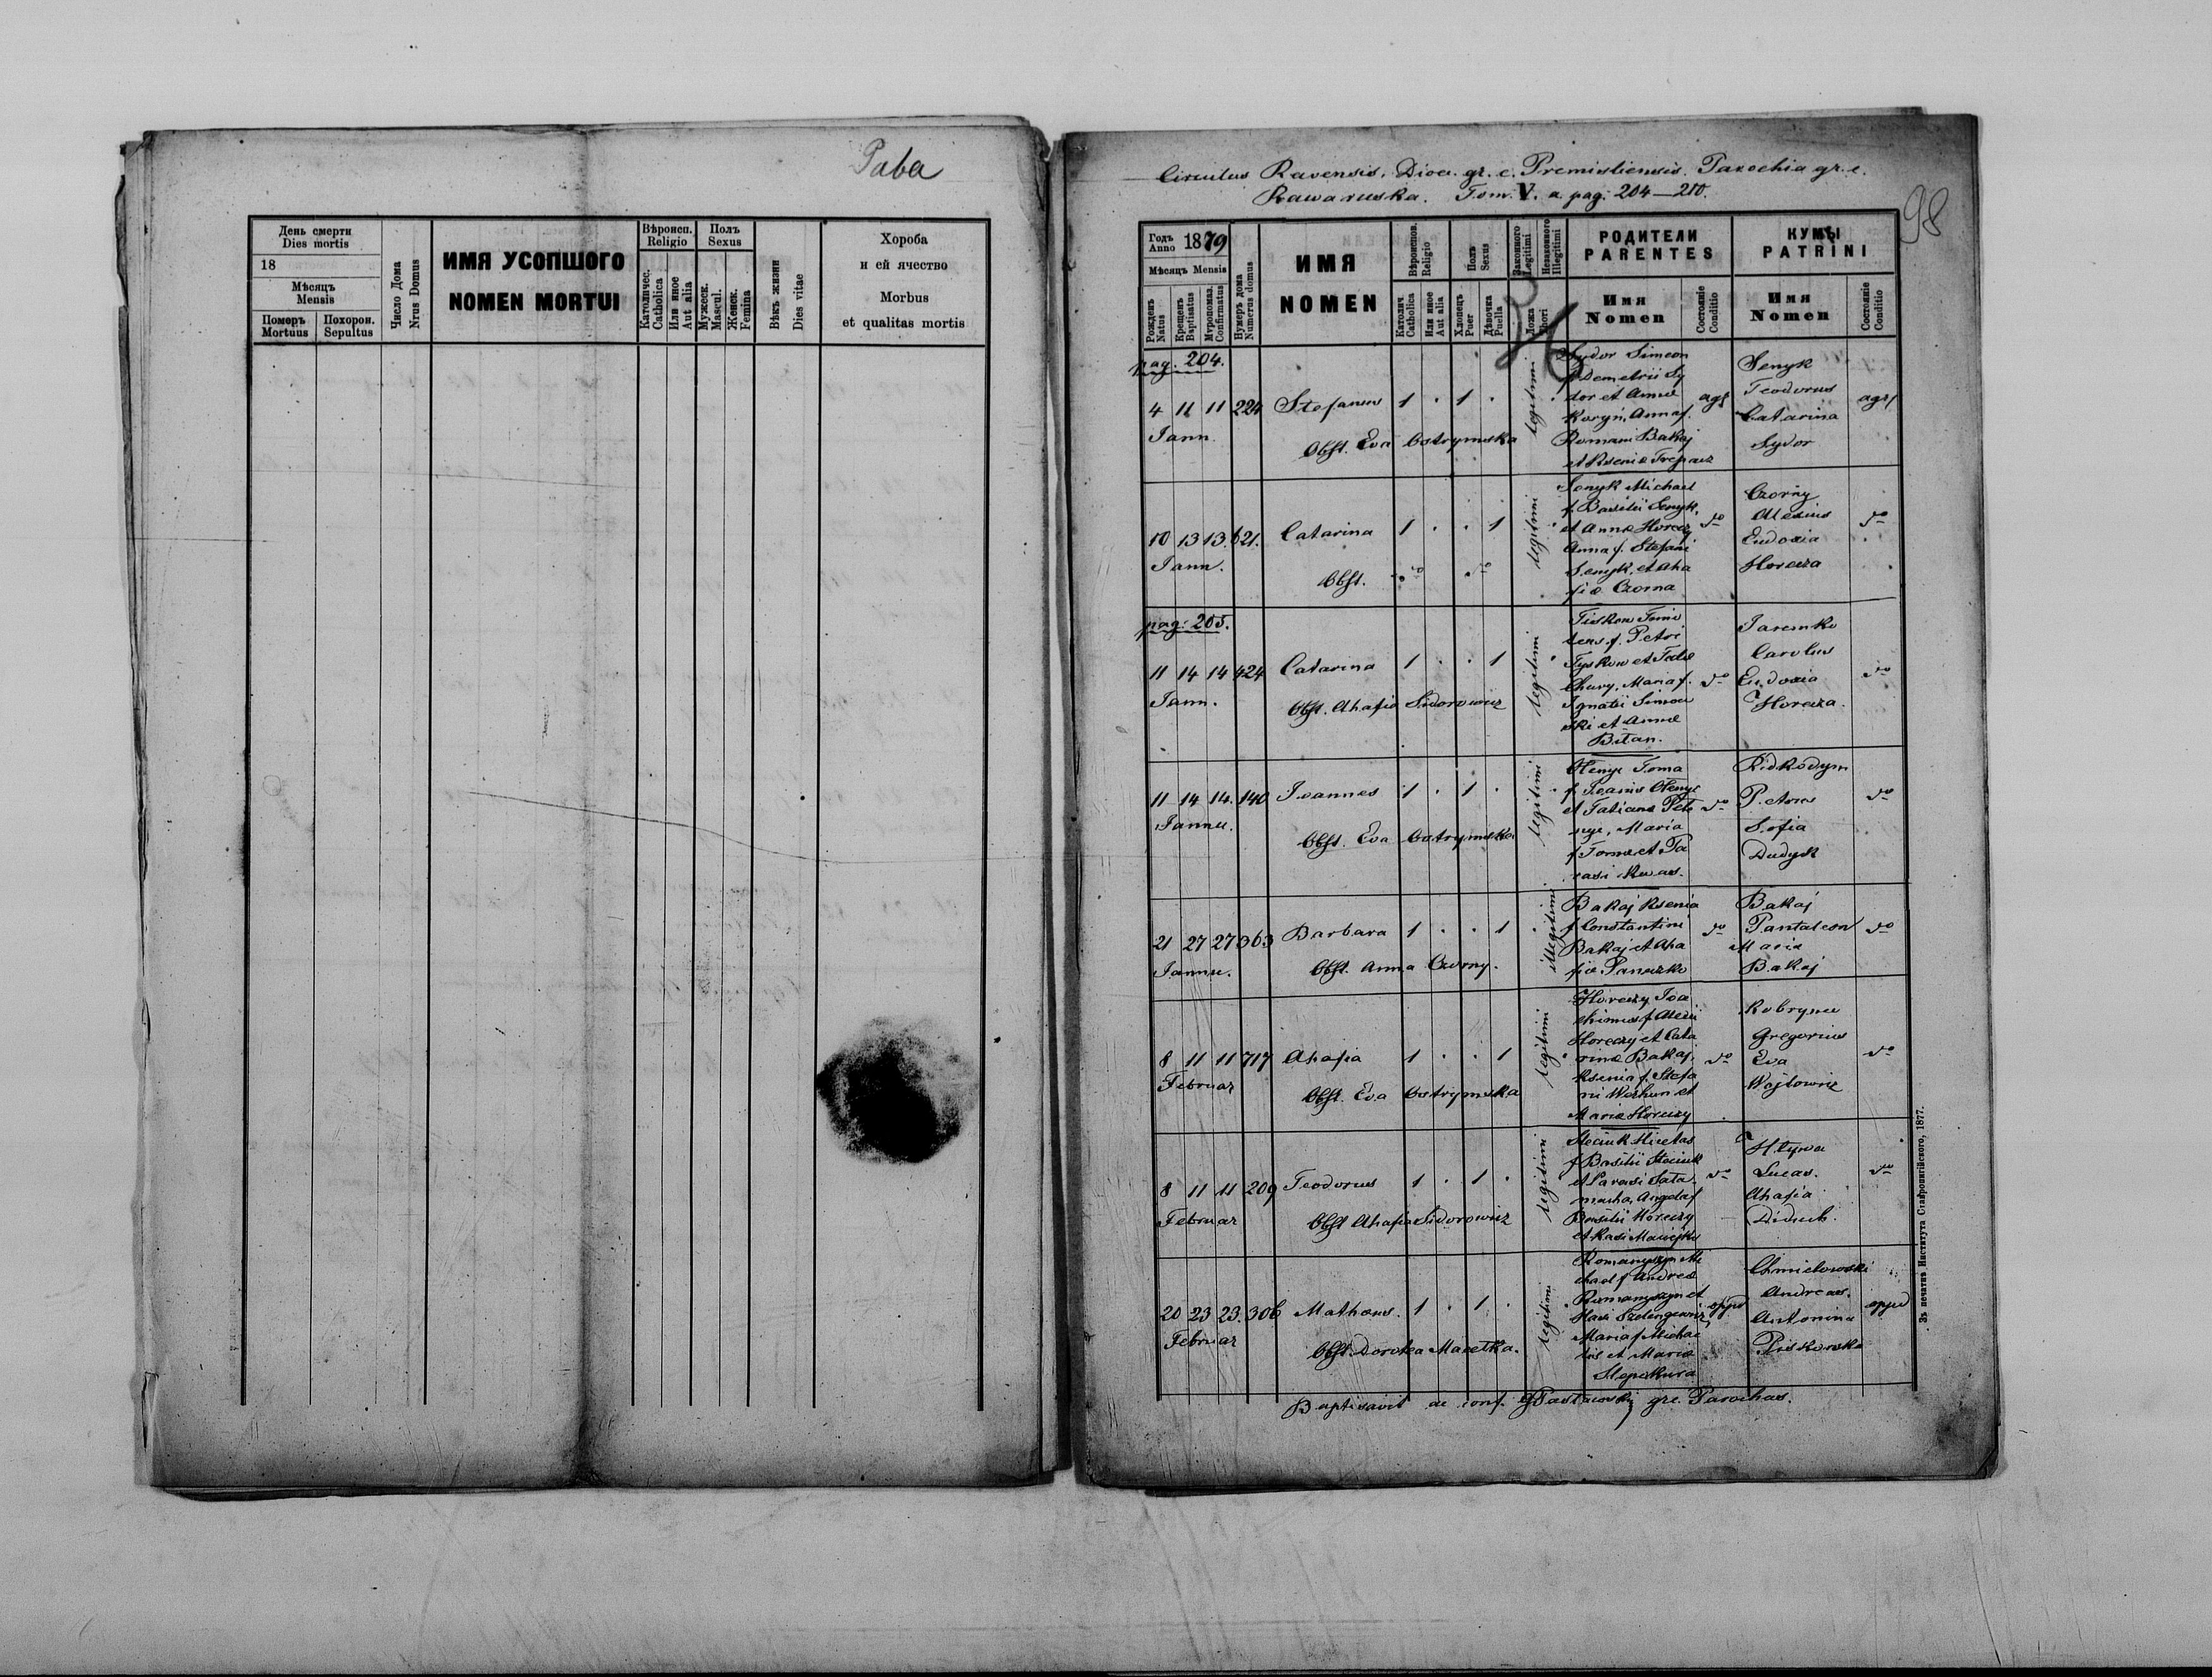 Рава
День смерти
Dies mortis
18
Мѣсяцъ
Mensis
Померъ
Mortuus
Похорон.
Sepultus
Число Дома
Nrus Domus
ИМЯ УСОПШОГО
NOMEN MORTUI
Вѣроисп.
Religio
Католичес.
Catholica
Или иное
Aut alia
Полъ
Sexus
Мужеск.
Mascul.
Женск.
Femina
Вѣкъ жизни
Dies vitae
Хороба
и ей ячество
Morbus
et qualitas mortis
Circulus Ravensis, Dioec. gr. c. Premisliensis. Parochia gr. c.
Rawaruska. Tom. V. a pag: 204—210.
98
Годъ
Anno 1879
Мѣсяцъ Mensis
Рожденъ
Natus
Крещенъ
Baptisatus
Мѵропомаз.
Confirmatus
Нумеръ дома
Numerus domus
ИМЯ
NOMEN
Вѣроиспов.
Religio
Католич.
Catholica
Или иное
Aut alia
Полъ
Sexus
Хлопецъ
Puer
Дѣвочка
Puella
Законного
Legitimi
Незаконного
Illegitimi
Ложа
РОДИТЕЛИ
PARENTES
Имя
Nomen
Состояніе
Conditio
КУМЫ
PATRINI
Имя
Nomen
Состояніе
Conditio
pag. 204.
4 11 11 224 Stefanus 1 . 1 .
Jann.
Obst. Eva Costrymska
legitimi
Sydor Simeon
f. Demetrii Sy
dor et Annae
Koryń, Anna f.
Romani Bakaj
et Ksenia
agr
Senyk
Teodorus
Catarina
Sydor
agr
10 13 13. 621. Catarina 1 . . 1
Jann.
Obst. do do
legitimi
Senyk Michael
f. Basilii Senyk,
et Anna Horeczy
Anna f. Stefani
Senyk, et Aha
fia Czorna
do
Czorny
Alexius
Eudoxia
Horecza
do
pag: 205.
11 14 14 424 Catarina 1 . . 1
Jann.
Obst. Ahafia Sidorowicz
legitimi
Tiskow Timo
teus f. Petri
Tyskow et
Chury, Maria f.
Ignatii Simow
ski et Annae
Bitan.
do
Jaremko
Carolus
Eudoxia
Horecza.
do
11 14 14. 140 Joannes 1 . 1 .
Jannu.
Obst. Eva Costrymska
legitimi
Toma
f. Joannis
et Tatiana
Maria
f. Tomae et Pa
rasi Kwas.
do
Kidkodym
Petrus
Sofia
Dudyk
do
21 27 27 363 Barbara 1 . . 1
Jannu.
Obst. Anna Czorny.
illegitimi
Bakaj Ksenia
f. Constantini
Bakaj et Aha
fia Panaczko
do
Bakaj
Pantaleon
Maria
Bakaj
do
8 11 11 717 Ahafia 1 . . 1
Februar
Obst. Eva Costrymska
legitimi
Horeczy Joa
chimus f. Alexii
Horeczy et Cata
rina Bakaj.
Ksenia f. Stefa
ni Wozhun et
Maria Horeczy
do
Kobryn
Gregorius
Eva
Wojtowicz
do
8 11 11 209 Teodorus 1 . 1 .
Februar
Obst Ahafia Sidorowicz
legitimi
Steciuk Nicetas
f. Basilii Steciuk
et Parasi Sata
macha, Angela f.
Basilii Horeczy
et Kasi
do
Lucas.
Ahafia
Diduch.
do
20 23 23. 306 Mathaeus. 1 . 1 .
Februar
Obst. Dorotea Macetka.
legitimi
Romanyszyn Mi
chael f. Andreae
Romanyszyn et
Szelengiewicz,
Maria f. Michae
lis et Maria
Slepokura
oppid
Chmielowski
Andreas.
Antonina
Piskorska
oppid
Baptisavit ac conf. gre. Parochus.
Зъ печатнѣ Института Ставропигійского, 1877.